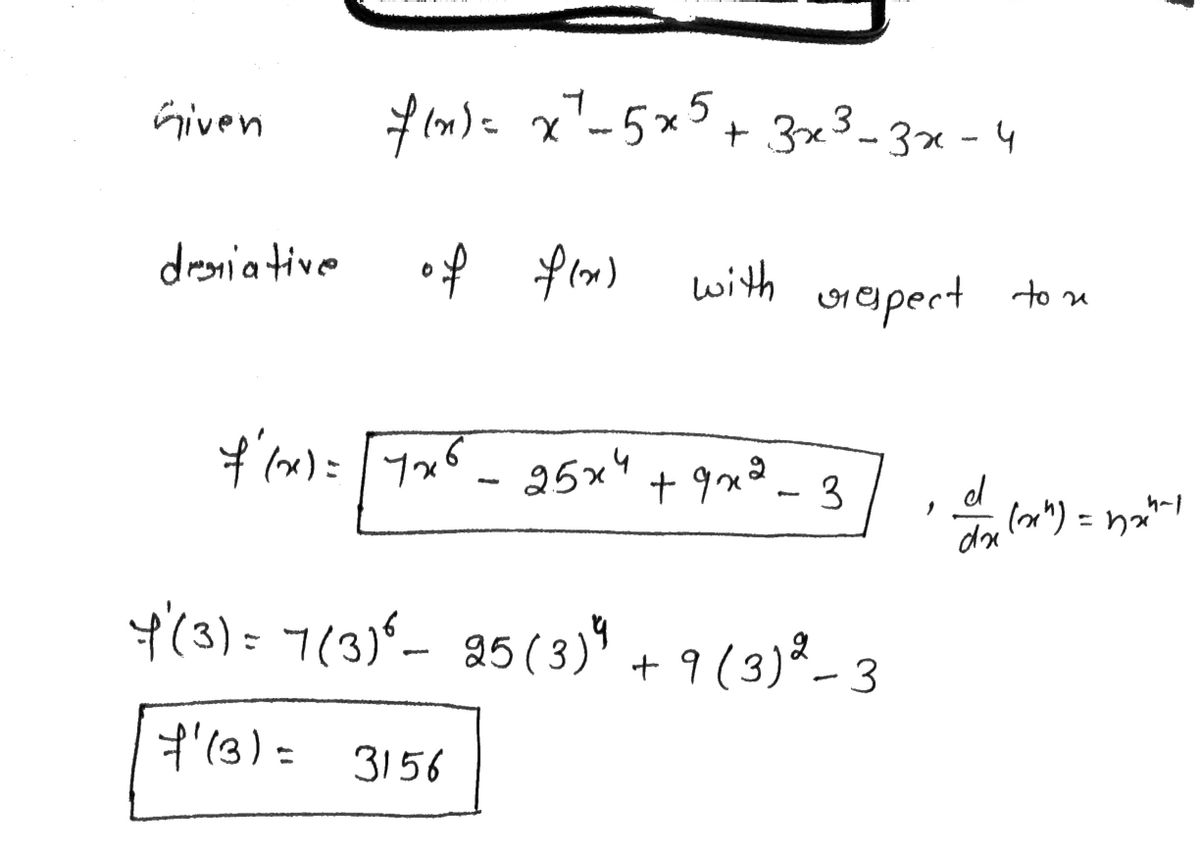 Given f(x) = x⁷ - 5x⁵ + 3x³ - 3x - 4
deriative of f(x) with respect to x
f'(x) = 7x⁶ - 25x⁴ + 9x² - 3 , d/dx (xⁿ) = nxⁿ⁻¹
f'(3) = 7(3)⁶ - 25(3)⁴ + 9(3)² - 3
f'(3) = 3156